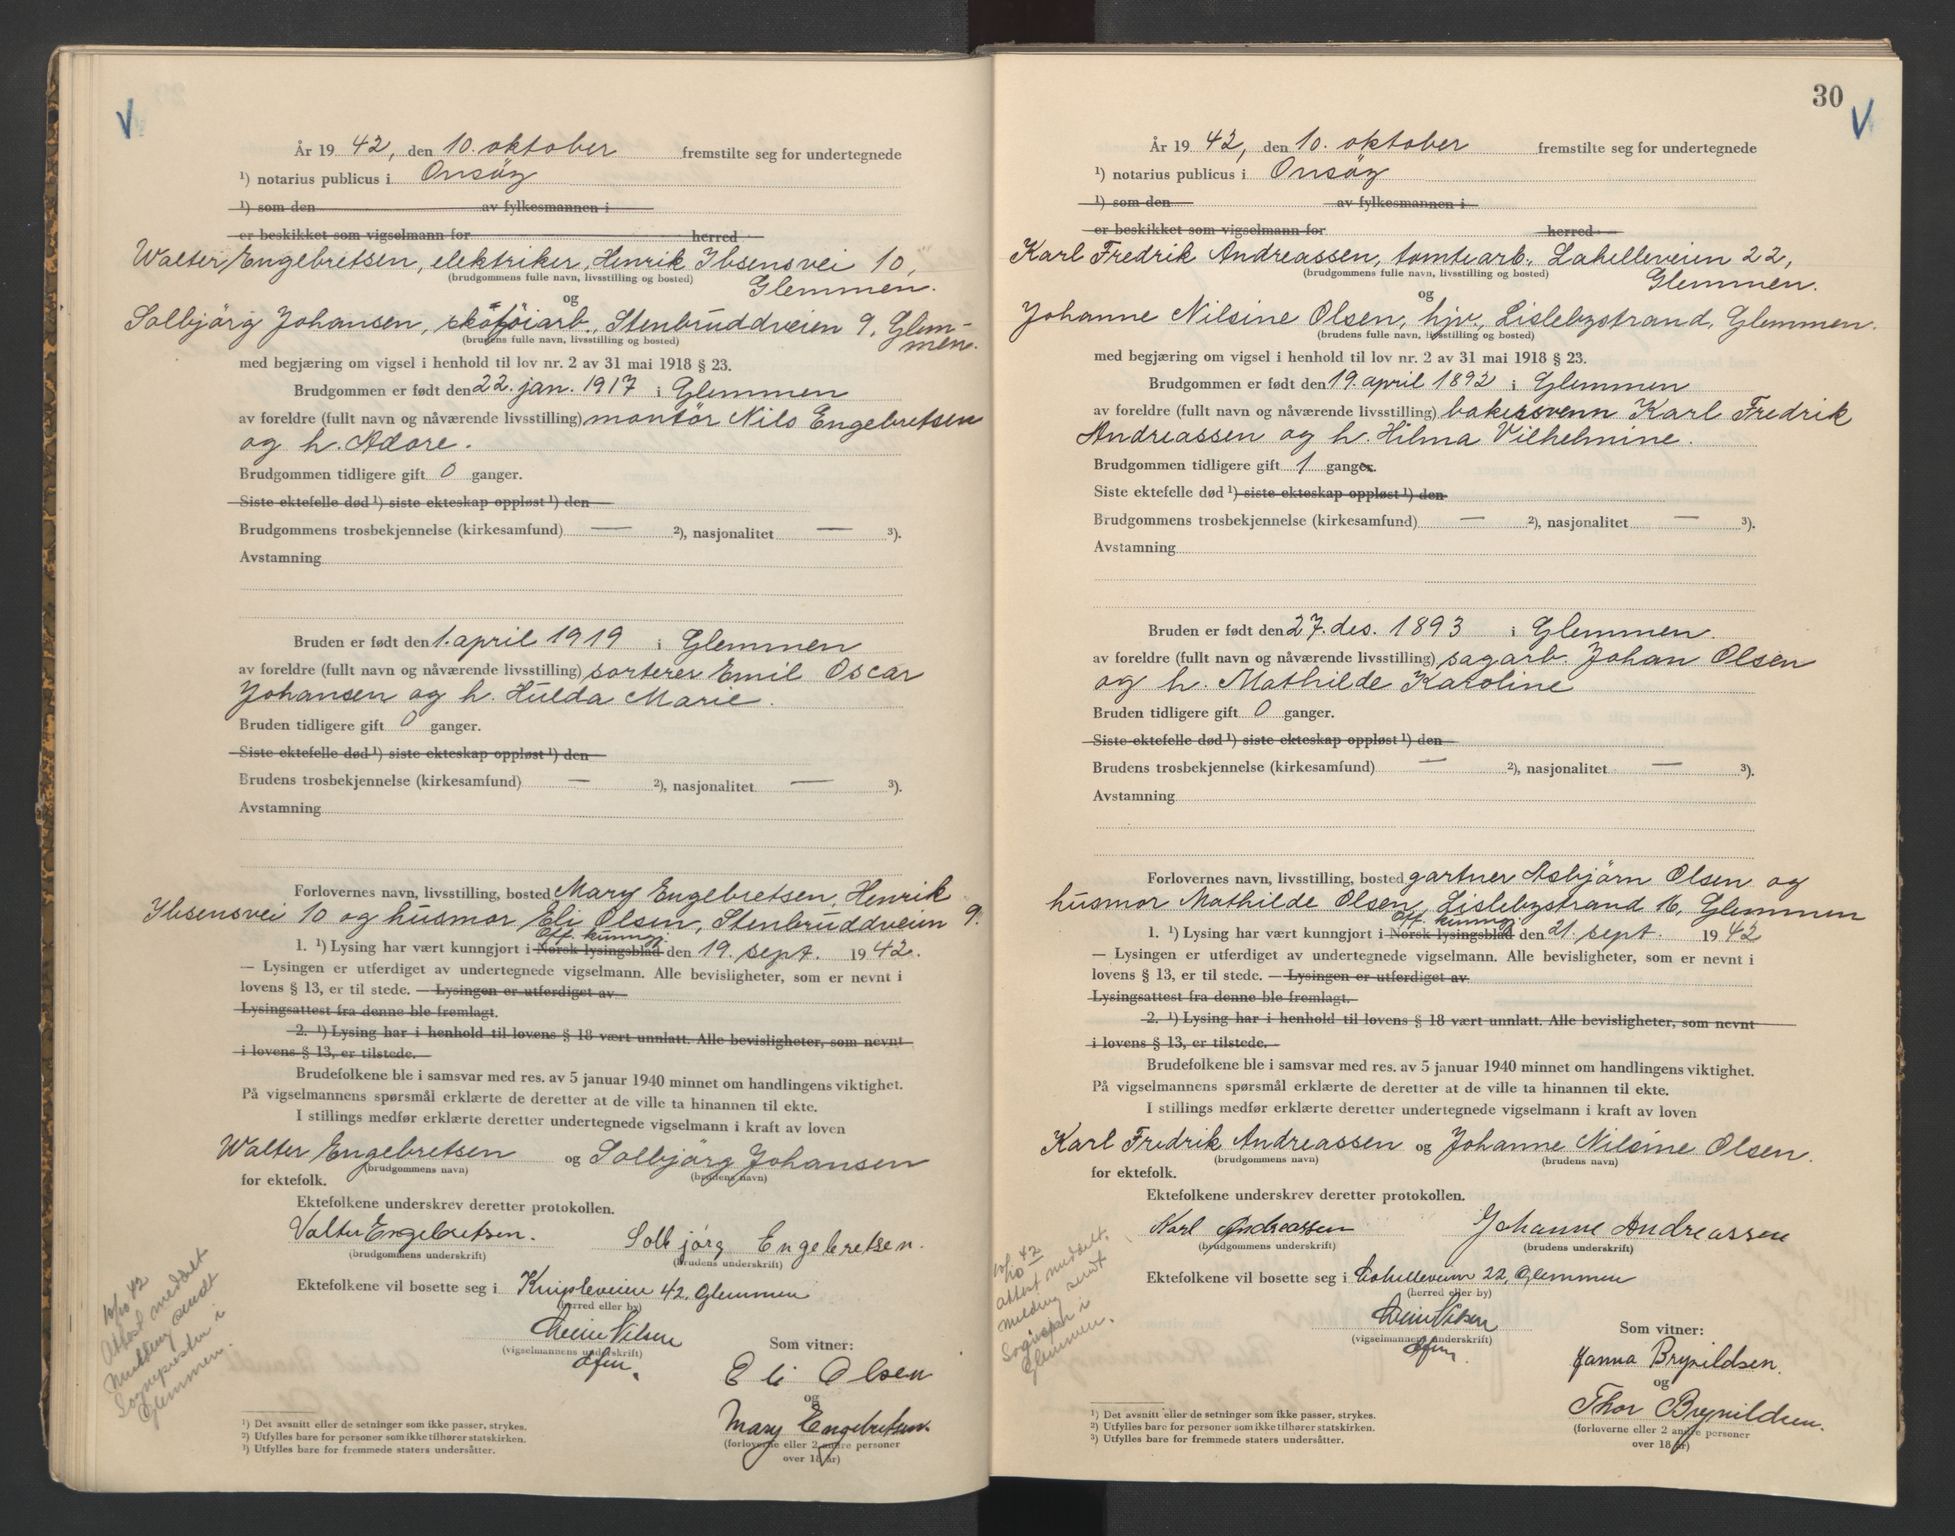 År 1942, den 10. oktober fremstilte seg for undertegnede
¹) notarius publicus i Onsöy
¹) som den av fylkesmannen i
er beskikket som vigselmann for herred
Walter Engebretsen, elektriker, Henrik Ibsensvei 10,
(brudgommens fulle navn, livsstilling og bosted)
Glemmen.
og
Solbjörg Johansen, skotöiarb., Stenbruddveien 9, Glem-
men.
(brudens fulle navn, livsstilling og bosted)
med begjæring om vigsel i henhold til lov nr. 2 av 31 mai 1918 § 23.
Brudgommen er født den 22. jan. 1917 i Glemmen
av foreldre (fullt navn og nåværende livsstilling) montör Nils Engebretsen
og h. Adore.
Brudgommen tidligere gift 0 ganger.
Siste ektefelle død ¹) siste ekteskap oppløst ¹) den
Brudgommens trosbekjennelse (kirkesamfund) — ²), nasjonalitet — ³).
Avstamning
Bruden er født den 1. april 1919 i Glemmen
av foreldre (fullt navn og nåværende livsstilling) sorterer Emil Oscar
Johansen og h. Hulda Marie.
Bruden tidligere gift 0 ganger.
Siste ektefelle død ¹) siste ekteskap oppløst ¹) den
Brudens trosbekjennelse (kirkesamfund) — ²), nasjonalitet — ³).
Avstamning
Forlovernes navn, livsstilling, bosted Mary Engebretsen, Henrik
Ibsensvei 10 og husmor Eli Olsen, Stenbruddveien 9.
Off. kunngj.
1. ¹) Lysing har vært kunngjort i Norsk lysingsblad den 19. sept. 1942.
— Lysingen er utferdiget av undertegnede vigselmann. Alle bevisligheter, som er nevnt i
lovens § 13, er til stede. — Lysingen er utferdiget av
Lysingsattest fra denne ble fremlagt.
2. ¹) Lysing har i henhold til lovens § 18 vært unnlatt. Alle bevisligheter, som nevnt
i lovens § 13, er tilstede.
Brudefolkene ble i samsvar med res. av 5 januar 1940 minnet om handlingens viktighet.
På vigselmannens spørsmål erklærte de deretter at de ville ta hinannen til ekte.
I stillings medfør erklærte deretter undertegnede vigselmann i kraft av loven
Walter Engebretsen og Solbjörg Johansen
(brudgommens navn) (brudens navn)
for ektefolk.
Ektefolkene underskrev deretter protokollen.
Valter Engebretsen. Solbjörg Engebretsen.
(brudgommens underskrift) (brudens underskrift)
Ektefolkene vil bosette seg i Knipleveien 42, Glemmen
(herred eller by)
Nilsen
(vigselmannens underskrift)
Som vitner:
Eli Olsen
og
Mary Engebretsen.
(forloverne eller 2 andre personer
over 18 år)
10/10 42
Attest meddelt
Melding sendt
Sognepresten i
Glemmen.
¹) Det avsnitt eller de setninger som ikke passer, strykes.
²) Utfylles bare for personer som ikke tilhører statskirken.
³) Utfylles bare for fremmede staters undersåtter.
30
År 1942, den 10. oktober fremstilte seg for undertegnede
¹) notarius publicus i Onsöy
¹) som den av fylkesmannen i
er beskikket som vigselmann for herred
Karl Fredrik Andreassen, tomtearb. Lahelleveien 22,
(brudgommens fulle navn, livsstilling og bosted)
Glemmen.
og
Johanne Nilsine Olsen, hjv., Lislebystrand, Glemmen.
(brudens fulle navn, livsstilling og bosted)
med begjæring om vigsel i henhold til lov nr. 2 av 31 mai 1918 § 23.
Brudgommen er født den 19. april 1892 i Glemmen
av foreldre (fullt navn og nåværende livsstilling) bakersvenn Karl Fredrik
Andreassen og h. Hilma Vilhelmine.
Brudgommen tidligere gift 1 ganger.
Siste ektefelle død ¹) siste ekteskap oppløst ¹) den
Brudgommens trosbekjennelse (kirkesamfund) — ²), nasjonalitet — ³).
Avstamning
Bruden er født den 27. des. 1893 i Glemmen.
av foreldre (fullt navn og nåværende livsstilling) sagarb. Johan Olsen
og h. Mathilde Karoline
Bruden tidligere gift 0 ganger.
Siste ektefelle død ¹) siste ekteskap oppløst ¹) den
Brudens trosbekjennelse (kirkesamfund) — ²), nasjonalitet — ³).
Avstamning
Forlovernes navn, livsstilling, bosted gartner Asbjörn Olsen og
husmor Mathilde Olsen, Lislebystrand 16, Glemmen
Off. kunngj.
1. ¹) Lysing har vært kunngjort i Norsk lysingsblad den 21. sept. 1942
— Lysingen er utferdiget av undertegnede vigselmann. Alle bevisligheter, som er nevnt i
lovens § 13, er til stede. — Lysingen er utferdiget av
Lysingsattest fra denne ble fremlagt.
2. ¹) Lysing har i henhold til lovens § 18 vært unnlatt. Alle bevisligheter, som nevnt
i lovens § 13, er tilstede.
Brudefolkene ble i samsvar med res. av 5 januar 1940 minnet om handlingens viktighet.
På vigselmannens spørsmål erklærte de deretter at de ville ta hinannen til ekte.
I stillings medfør erklærte deretter undertegnede vigselmann i kraft av loven
Karl Fredrik Andreassen og Johanne Nilsine Olsen.
(brudgommens navn) (brudens navn)
for ektefolk.
Ektefolkene underskrev deretter protokollen.
Karl Andreassen Johanne Andreassen
(brudgommens underskrift) (brudens underskrift)
Ektefolkene vil bosette seg i Lahelleveien 22, Glemmen
(herred eller by)
Nilsen
(vigselmannens underskrift)
Som vitner:
Janna Brynildsen.
og
Thor Brynildsen.
(forloverne eller 2 andre personer
over 18 år)
10/10 42
Attest meddelt.
Melding sendt
Sognepr. i
Glemmen.
¹) Det avsnitt eller de setninger som ikke passer, strykes.
²) Utfylles bare for personer som ikke tilhører statskirken.
³) Utfylles bare for fremmede staters undersåtter.